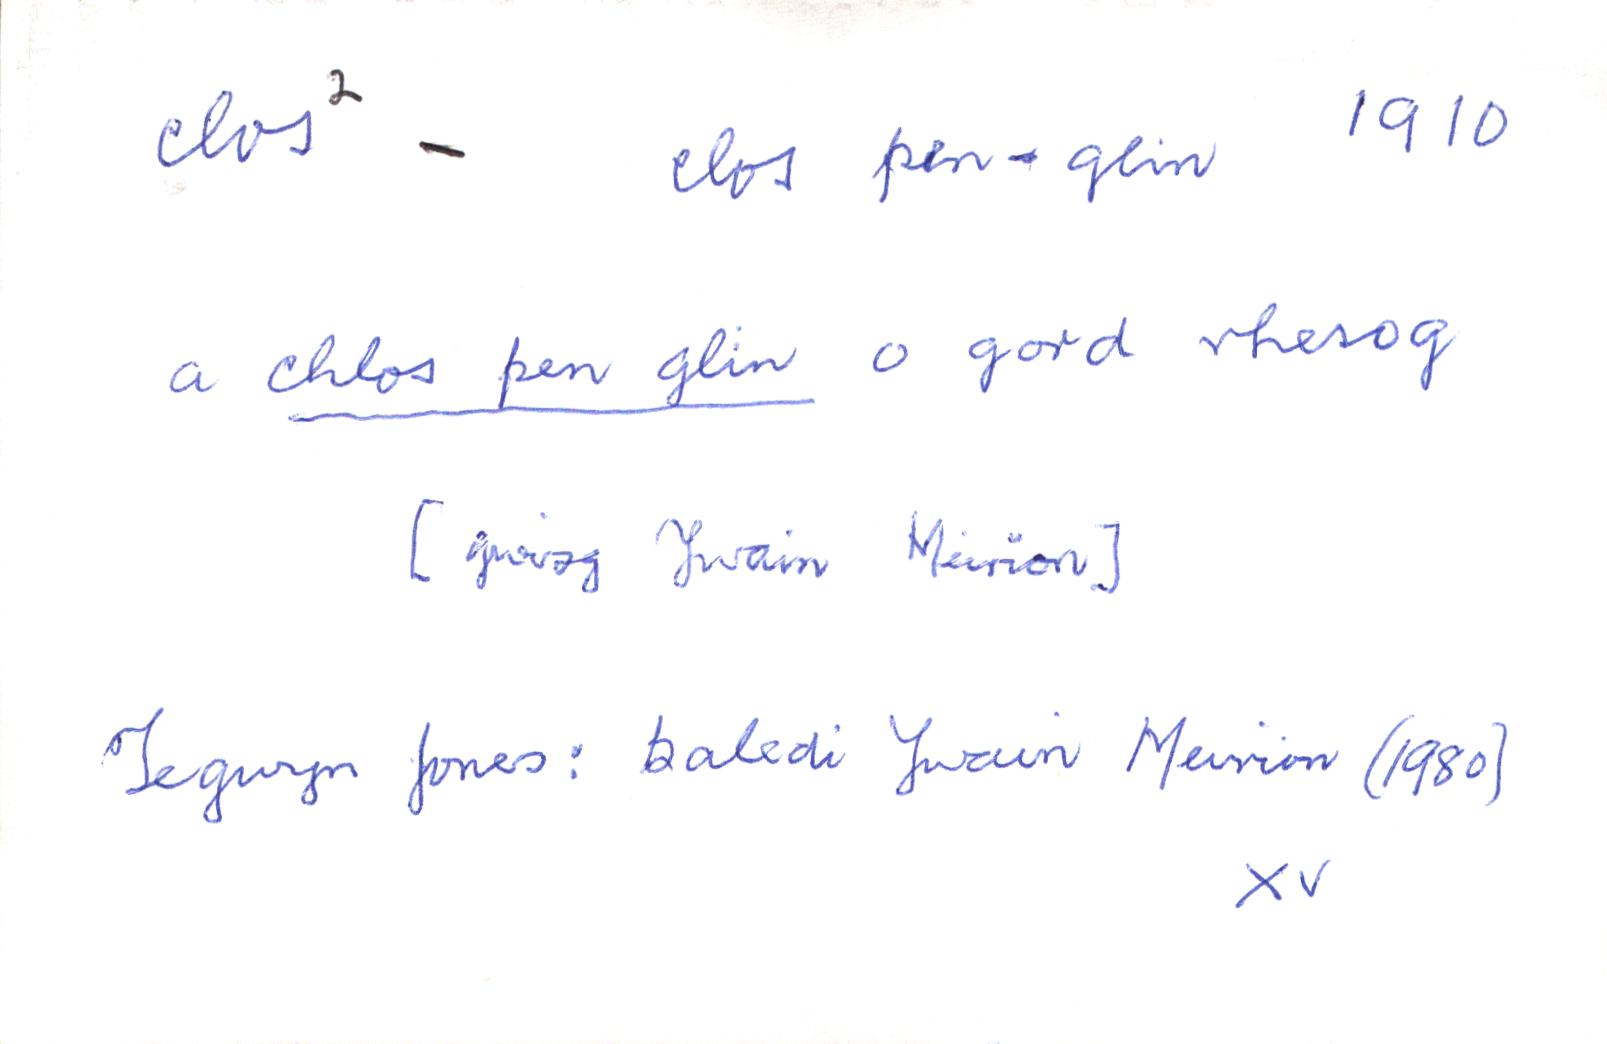 clos² - clos pen-glin 1910
a chlos pen glin o gord rhesog
[gwisg Ywain Meirion]
Tegwyn Jones: baledi Ywain Meirion (1980)
xv